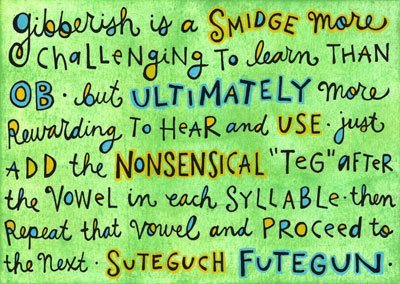 gibberish is a SMidge more
CHALLENgiNg To learn THAN
OB · but ULTiMATELY more
Rewarding To HeAR and USE · just
ADD the NONSENSiCAL "TeG" aFTeR
the VOWeL in each SYLLABLe · then
Repeat that Vowel and PROCeeD to
the Next · SuTEGuCH FUTEGUN ·